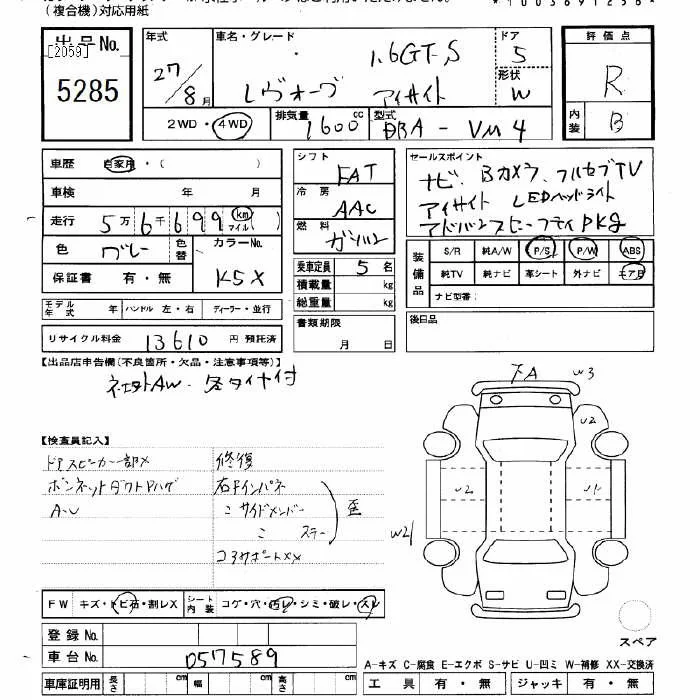 (複合機)対応用紙
出品No.
[2059]
5285
年式
27/8月
車名・グレード
1.6GT.S
レヴォーグ アイサイト
ドア
5
形状
W
2WD・4WD
排気量
1600cc
型式
DBA - VM4
評価点
R
内装
B
車歴 自家用・( )
車検 年 月
走行 5万6千699 km マイル( )
色 グレー
色替
カラーNo.
K5X
保証書 有・無
モデル年式 年 ハンドル 左・右 ディーラー・並行
リサイクル料金 13610 円 預託済
シフト
FAT
冷房
AAC
燃料
ガソリン
乗車定員 5 名
積載量 kg
総重量 kg
書類期限
月 日
セールスポイント
ナビ、Bカメラ、フルセグTV
アイサイト LEDヘッドライト
アドバンスセーフティPKG
装備品
S/R 純A/W P/S P/W ABS
純TV 純ナビ 革シート 外ナビ エアB
ナビ型番:
後日品
【出品店申告欄(不良箇所・欠品・注意事項等)】
【検査員記入】
ドアスピーカー部×
ボンネットダクトPハゲ
A-U
修復
右Fインパネ
〃 サイドメンバー
〃 ステー
歪
コアサポートXX
FW キズ・トビ石・割レX
シート内装 コゲ・穴・汚レ・シミ・破レ・スレ
登録No.
車台No. 057589
車庫証明用 長さ cm 幅 cm 高さ cm
下A
W3
U2
U2
U1
W2
スペア
A-キズ C-腐食 E-エクボ S-サビ U-凹ミ W-補修 XX-交換済
工具 有・無 ジャッキ 有・無